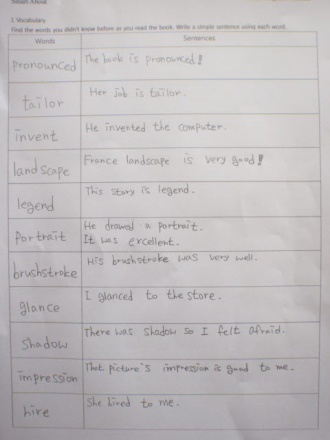 Smart About
I. Vocabulary
Find the words you didn't know before or you read the book. Write a simple sentence using each word.
Words Sentences
pronounced The book is pronounced!
tailor Her job is tailor.
invent He invented the computer.
landscape France landscape is very good!
legend This story is legend.
portrait He drawed a portrait.
It was excellent.
brushstroke His brushstroke was very well.
glance I glanced to the store.
shadow There was shadow so I felt afraid.
impression That picture's impression is good to me.
hire She hired to me.